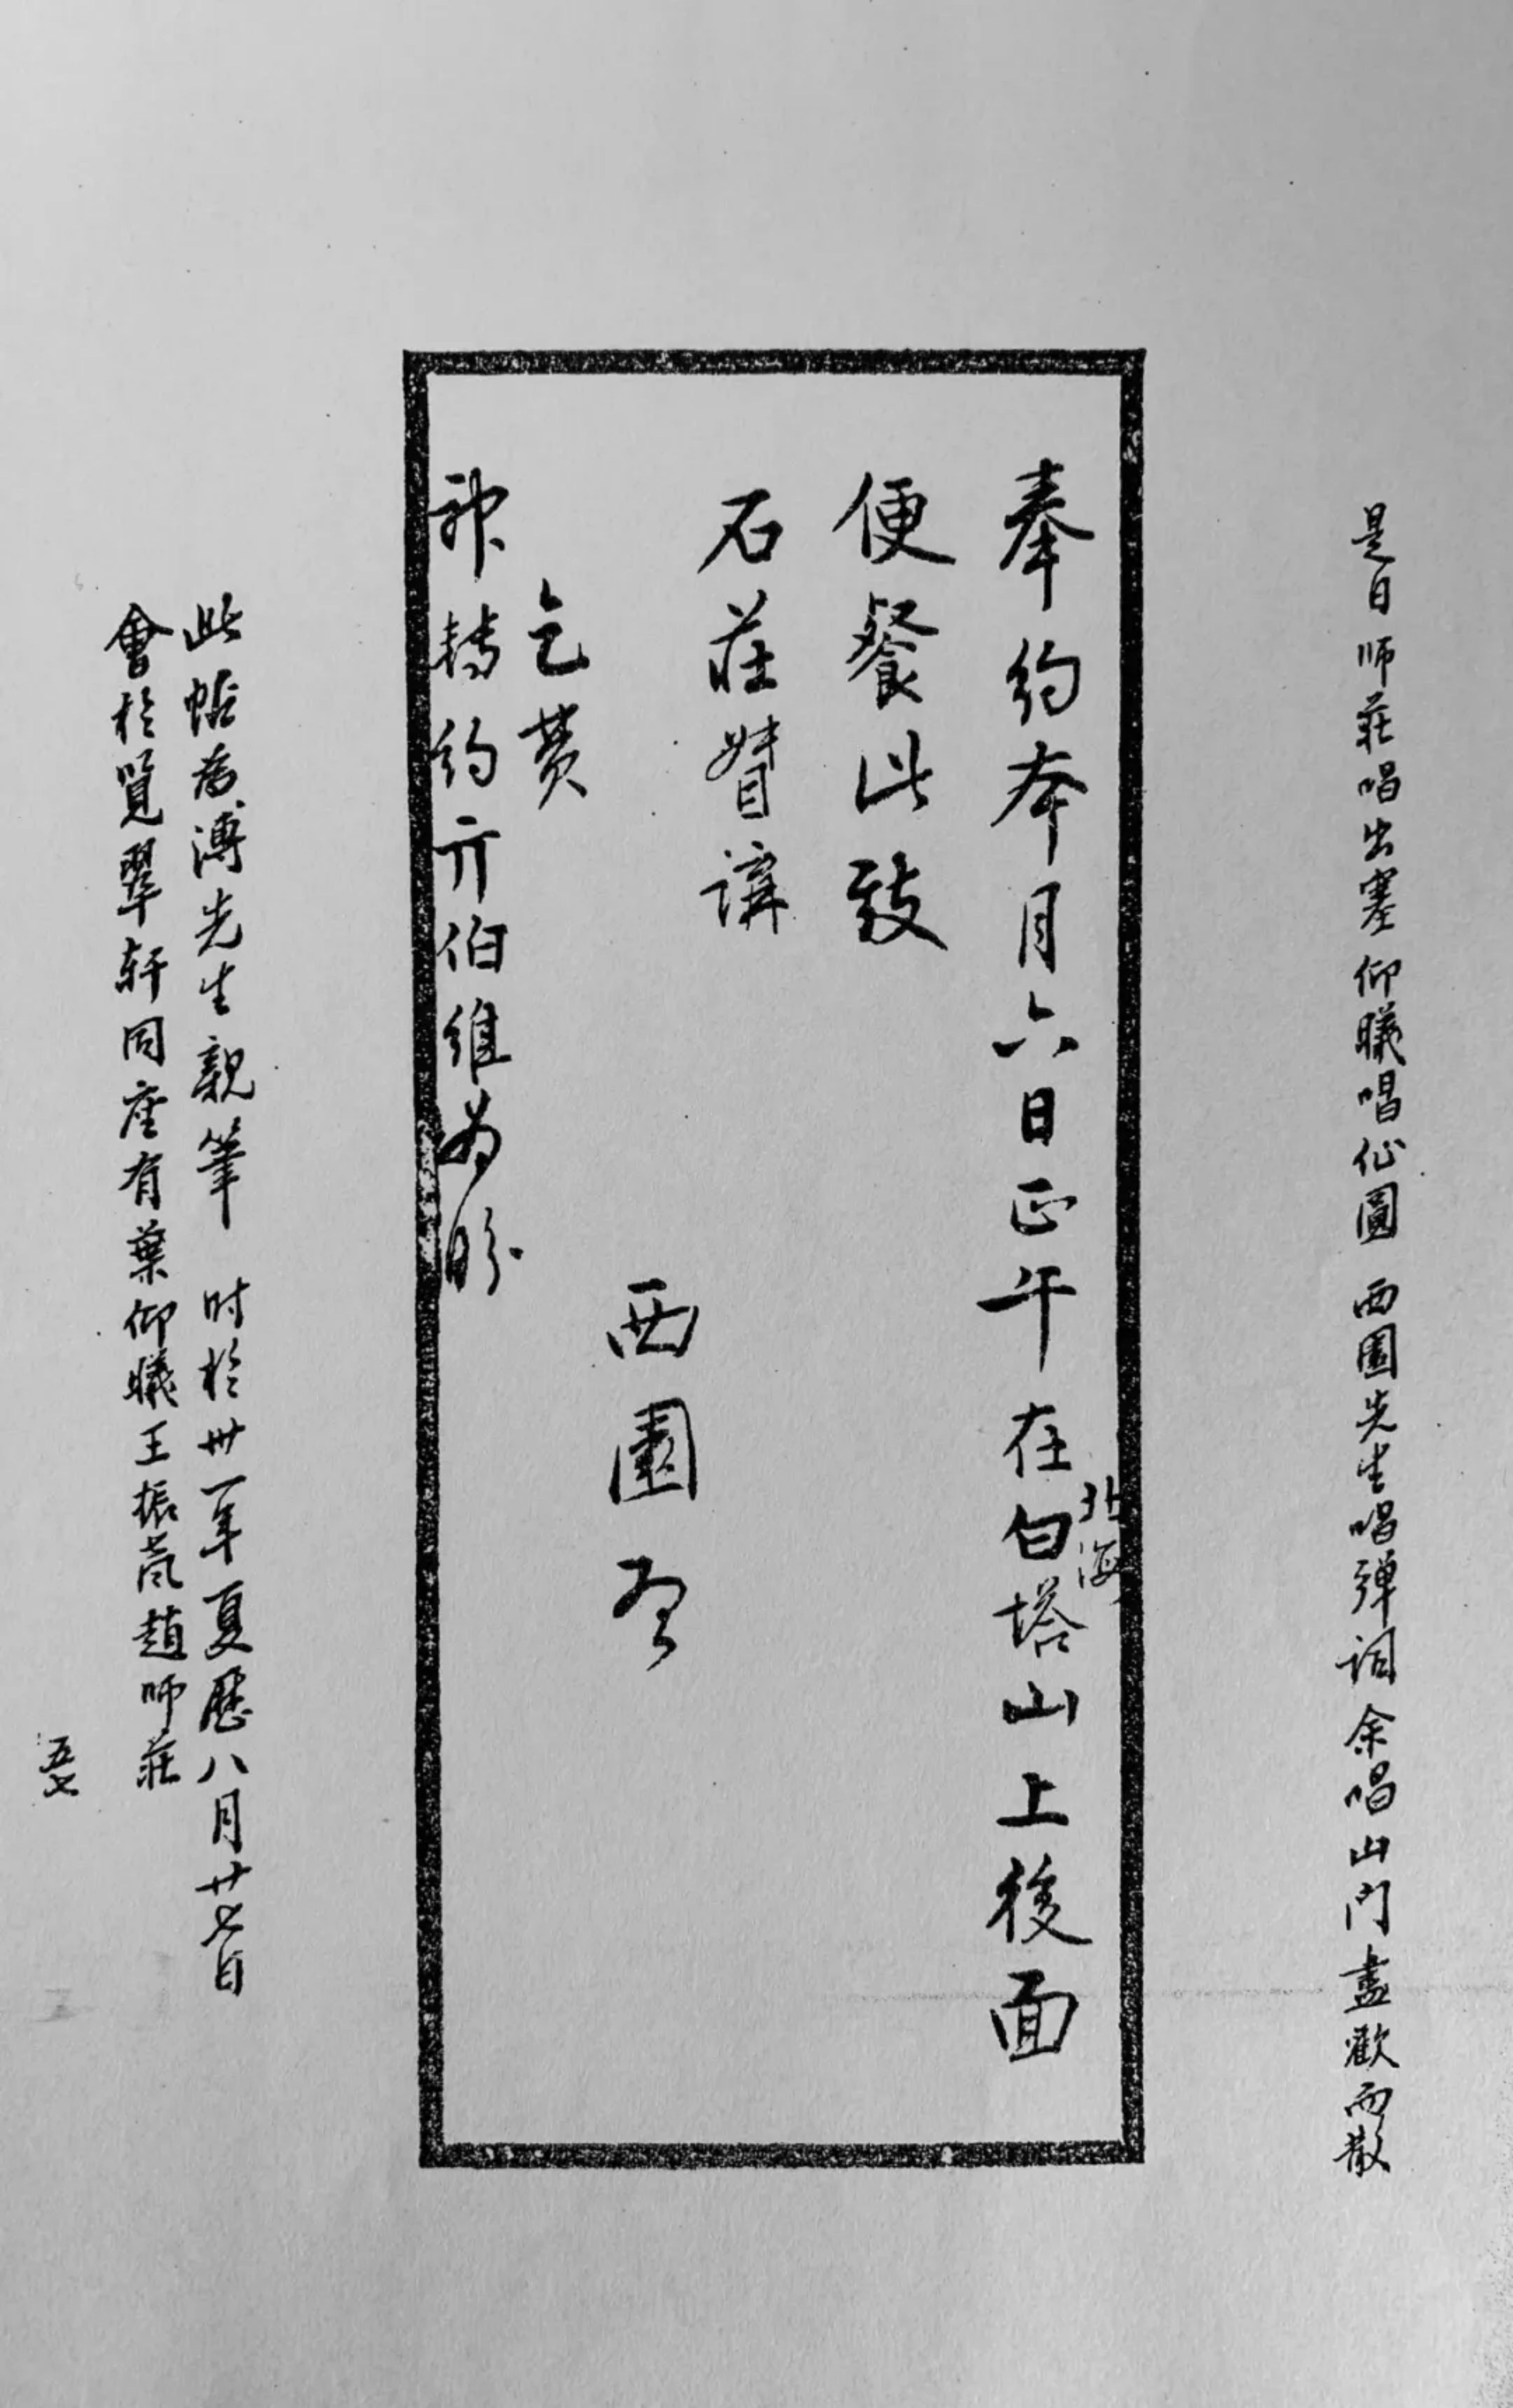 是日师莊唱出塞仰曦唱仙圓西園先生唱彈詞余唱山門盡歡而散
奉約本月六日正午在北海白塔山上後面
便餐此致
石莊賢講
西園啓
乞費
神轉約亓伯維為盼
此帖為溥先生親筆 时於卅一年夏歷八月廿七日
會於覽翠轩同座有葉仰曦王振 趙师莊